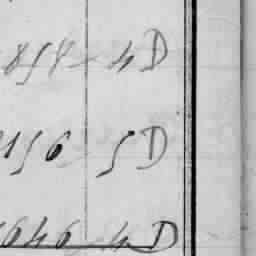 858 4D
2156 5D
5646 4D